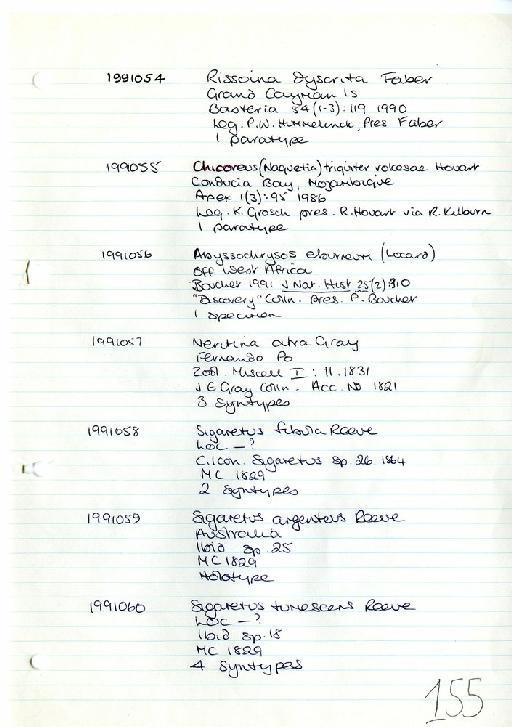 1991054 Rissoina dyscrita Faber
Grand Cayman Is
Basteria 54(1-3):119 1990
Leg. P.W. Hummelinck, Pres Faber
1 paratype
1991055 Chicoreus (Naquetia) triqueter vokesae Houart
Conducia Bay, Mozambique
Apex 1(3):95 1986
Leg. K. Grosch pres. R. Houart via R. Kilburn
1 paratype
1991056 Abyssochrysos eburneum (Locard)
Off West Africa
Bouchet 1991 J Nat. Hist 25(2):310
"Discovery" Colln. pres. P. Bouchet
1 specimen
1991057 Neritina atra Gray
Fernando Po
Zool. Miscell I : 11. 1831
J E Gray Colln. Acc. No 1821
3 Syntypes
1991058 Sigaretus fibula Reeve
Loc. - ?
C. Icon. Sigaretus sp. 26 1864
MC 1829
2 Syntypes
1991059 Sigaretus argenteus Reeve
Australia
Ibid sp. 25
MC 1829
Holotype
1991060 Sigaretus tumescens Reeve
Loc - ?
Ibid sp. 15
MC 1829
4 Syntypes
155